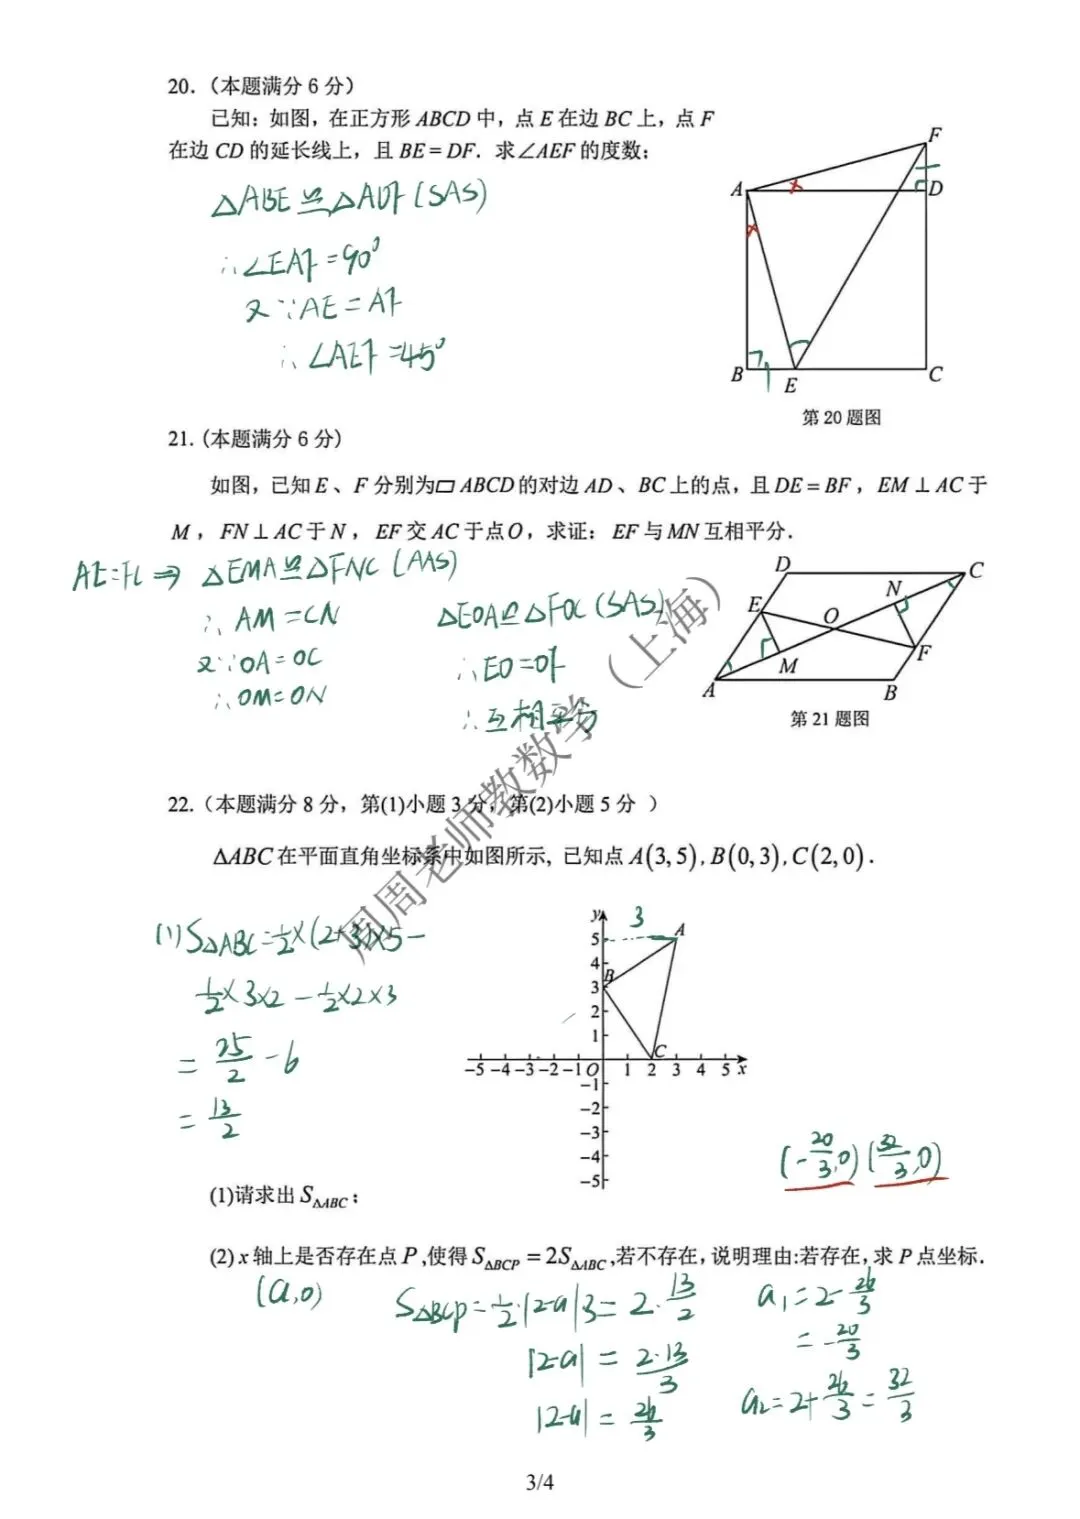 20.（本题满分 6 分）
已知：如图，在正方形 ABCD 中，点 E 在边 BC 上，点 F
在边 CD 的延长线上，且 BE = DF．求∠AEF 的度数；
△ABE≌△ADF (SAS)
∴∠EAF=90°
又∵AE=AF
∴∠AEF=45°
F
A
×
D
×
B
E
C
第 20 题图
21.（本题满分 6 分）
如图，已知 E 、F 分别为▱ ABCD 的对边 AD 、BC 上的点，且 DE = BF，EM ⊥ AC 于
M，FN ⊥ AC 于 N，EF 交 AC 于点 O，求证：EF 与 MN 互相平分．
AE=FC ⇒ △EMA≌△FNC (AAS)
∴ AM=CN
又∵OA=OC
∴OM=ON
△EOA≌△FOC (SAS)
∴EO=OF
∴互相平分
D
C
E
N
O
M
F
A
B
第 21 题图
周周老师教数学（上海）
22.（本题满分 8 分，第(1)小题 3 分，第(2)小题 5 分 ）
ΔABC 在平面直角坐标系中如图所示, 已知点 A(3,5), B(0,3), C(2,0)．
(1) S△ABC=½×(2+3)×5−
½×3×2−½×2×3
= 25/2 −6
= 13/2
y
3
A
5
4
B
3
2
1
C
-5 -4 -3 -2 -1 O 1 2 3 4 5 x
-1
-2
-3
-4
-5
(-20/3,0) (32/3,0)
(1)请求出 S△ABC；
(2) x 轴上是否存在点 P ,使得 S△BCP = 2S△ABC ,若不存在，说明理由:若存在，求 P 点坐标．
(a,0)
S△BCP=½·|2-a|3=2·13/2
|2-a| = 2·13/3
|2-a| = 26/3
a₁=2-26/3
= -20/3
a₂=2+26/3=32/3
3/4